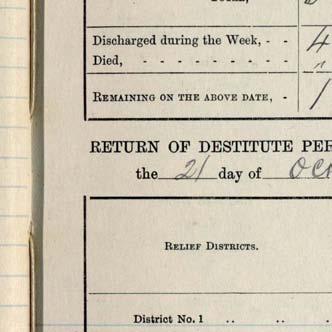 Discharged during the Week, - - 4
Died, - - - - - - - -
REMAINING ON THE ABOVE DATE, - 1
RETURN OF DESTITUTE PER
the 21 day of Oct
RELIEF DISTRICTS.
District No. 1 .. .. ..